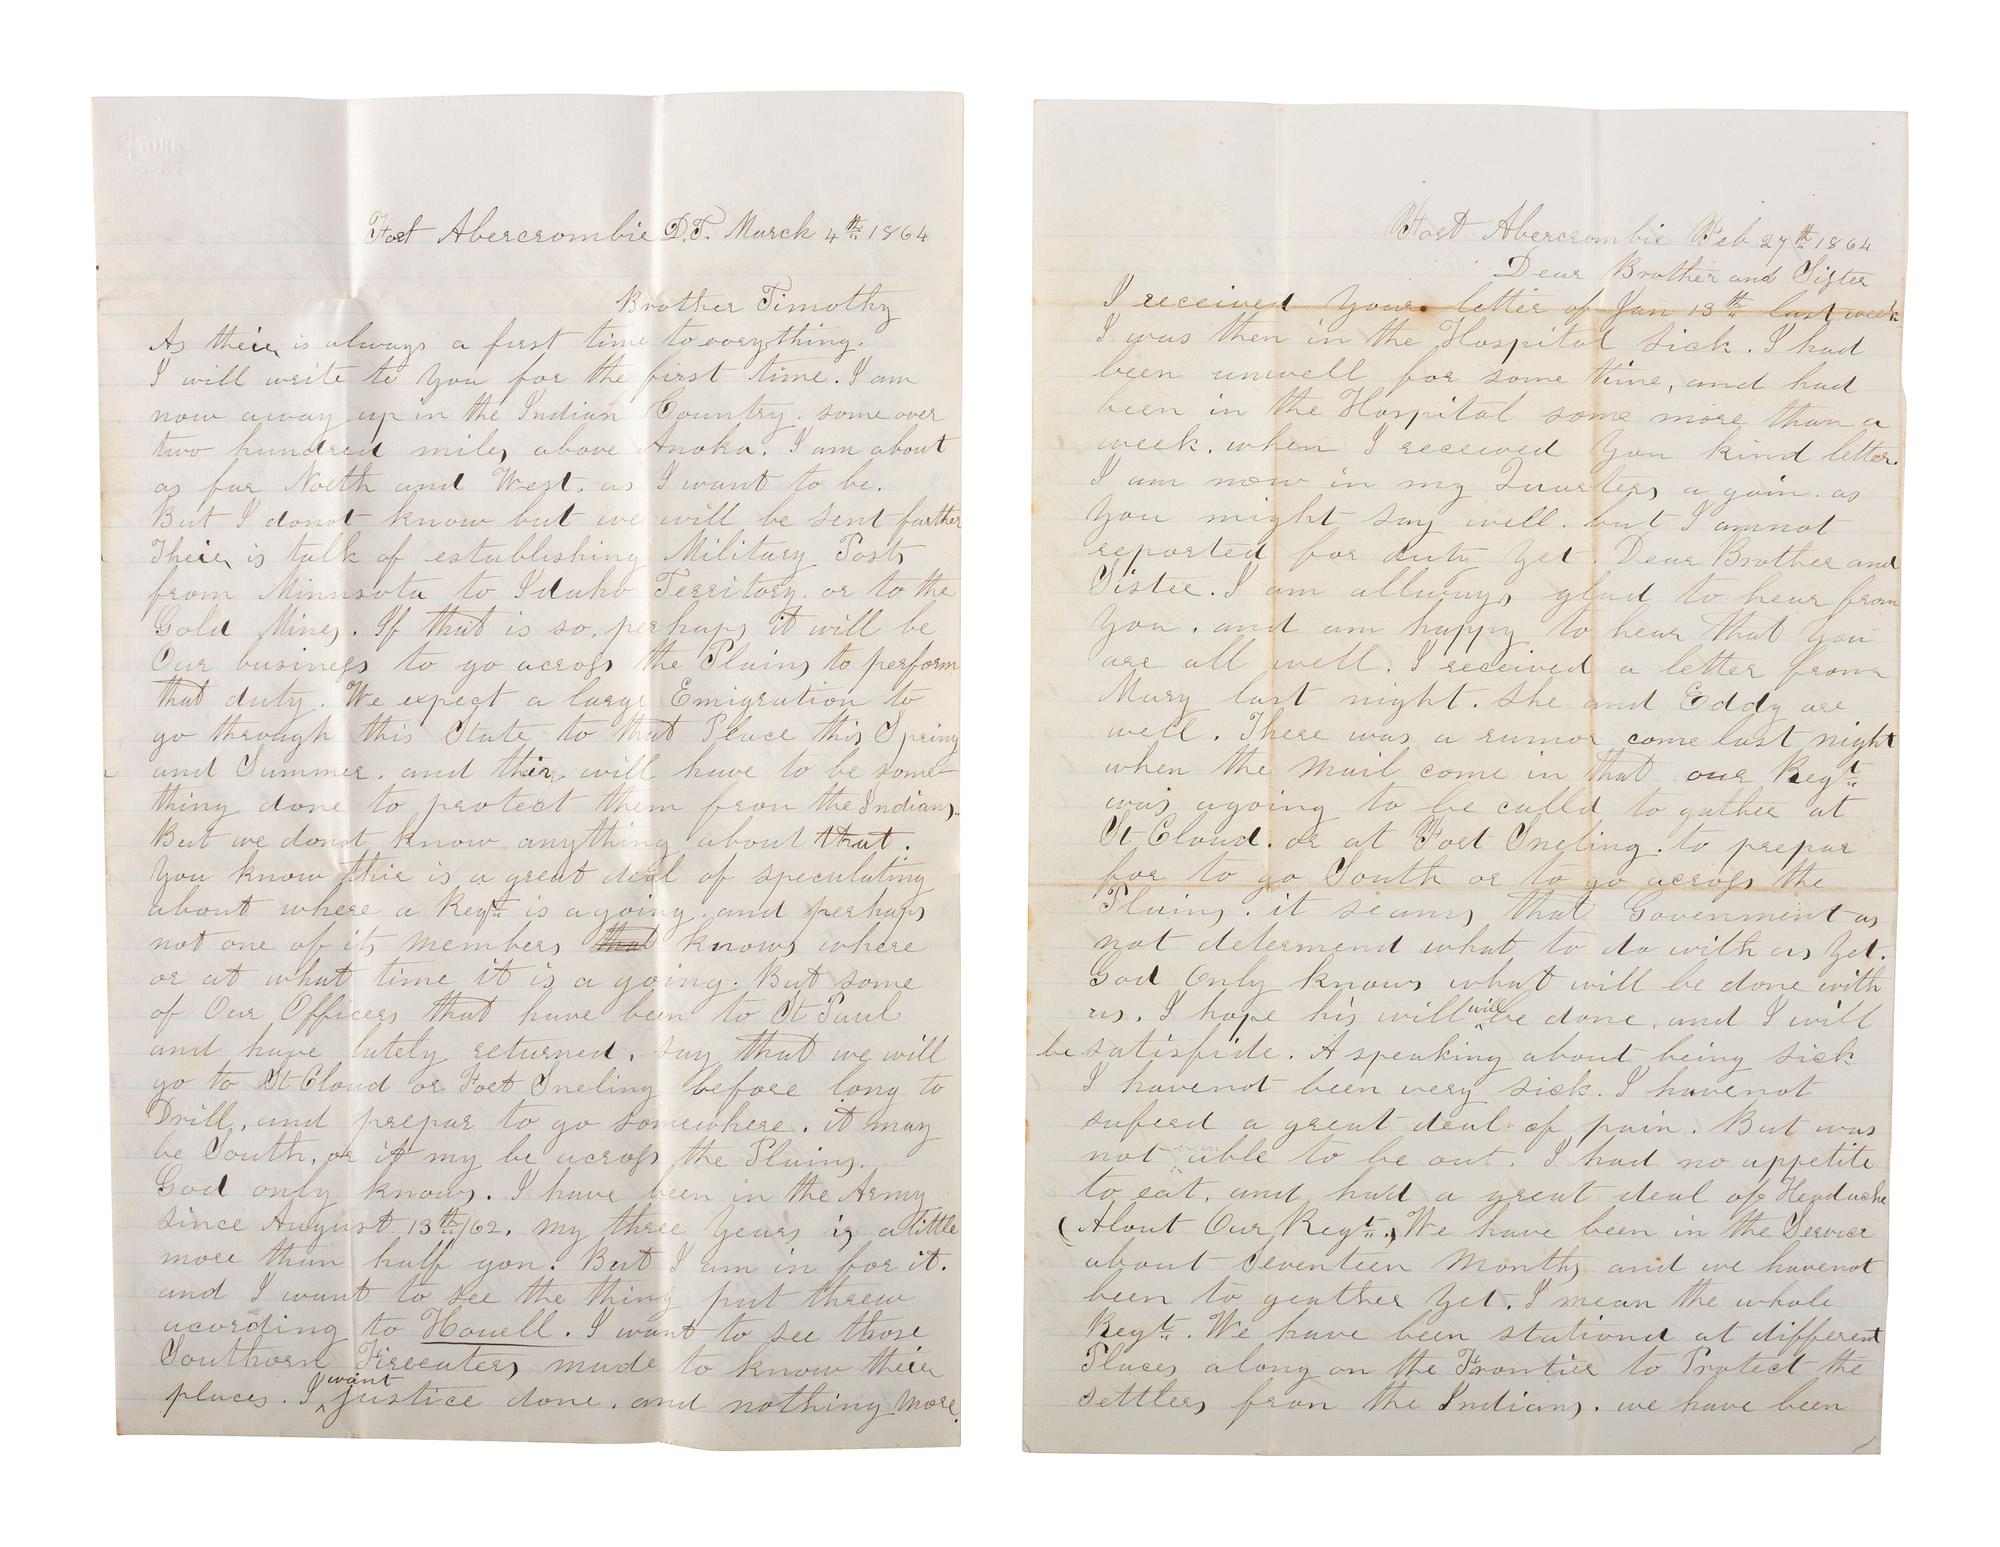 Fort Abercrombie D.T. March 4th 1864
Brother Timothy
As their is always a first time to everything.
I will write to you for the first time. I am
now away up in the Indian Country. some over
two hundred miles above Anoka. I am about
as far North and West. as I want to be.
But I donot know but we will be sent farther
Their is talk of establishing Military Posts
from Minnsota to Idaho Territory. or to the
Gold Mines. If that is so, perhaps it will be
Our business to go across the Plains to perform
that duty. We expect a large Emigration to
go through this State to that Place this Spring
and Summer. and their will have to be some-
thing done to protect them from the Indians.
But we donot know anything about that.
You know thire is a great deal of speculating
about where a Regt is agoing. and perhaps
not one of its members that knows where
or at what time it is a going. But some
of Our Officers that have been to St Paul
and have lately returned, say that we will
go to St Cloud or Fort Sneling before long to
Drill, and prepar to go somewhere. it may
be South, or it my be across the Plains.
God only knows. I have been in the Army
since August 13th/62. my three years is a little
more than half gon. But I am in for it.
and I want to see the thing put threw
acording to Howell. I want to see those
Southorn Fireeaters made to know their
places. I want justice done. and nothing more.
Fort Abercrombie Feb 27th 1864
Dear Brother and Sister
I received your letter of Jan 13th last week
I was then in the Hospital sick. I had
been unwell for some time, and had
been in the Hospital some more than a
week. when I received you kind letter.
I am now in my Quarters again. as
you might say well. but I amnot
reported for duty yet. Dear Brother and
Sister. I am allways glad to hear from
you. and am happy to hear that you
are all well. I received a letter from
Mary last night. she and Eddy are
well. There was a rumor come last night
when the mail come in that our Regt
was agoing to be calld to gather at
St Cloud. or at Fort Sneling. to prepar
for to go South or to go across the
Plains. it seams that Government as
not determend what to do with us yet.
God only knows what will be done with
us. I hope his will will be done. and I will
be satisfide. A speaking about being sick
I havenot been very sick. I havenot
suferd a great deal of pain. But was
not able to be out. I had no appetite
to eat. and had a great deal of Headache
(About Our Regt.) We have been in the Service
about Seventeen Months and we havenot
been to geather yet. I mean the whole
Regt. We have been stationd at different
Places along on the Frontier to Protect the
settlers from the Indians. we have been